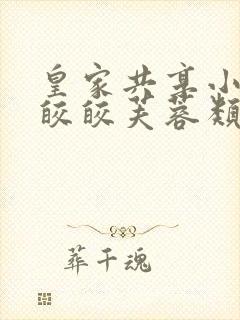 皇家共享小
皎皎芙蓉颜
葬千魂